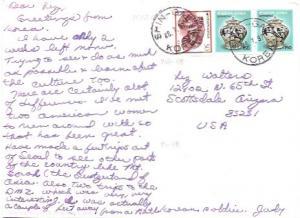 Dear Liz,
Greetings from
Korea.
I have only 2
weeks left now.
Trying to see + do as much
as possible & learn about
the culture too.
There are certainly alot
of differences. I've met
two American women
to run around with so
that has been great.
Have made a few trips out
of Seoul to see other parts
of the country like Mt.
Sorak (the Switzerland of
Asia. Also two trips to the
DMZ which was very, very
interesting. It was actually
a couple of feet away from a North Korean soldier. Judy
Liz Walters
N. 65th St.
Scottsdale Arizona
85251
USA
KOREA